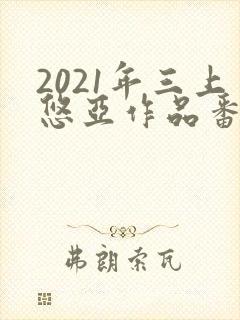 2021年三上
悠亚作品番
弗朗索瓦